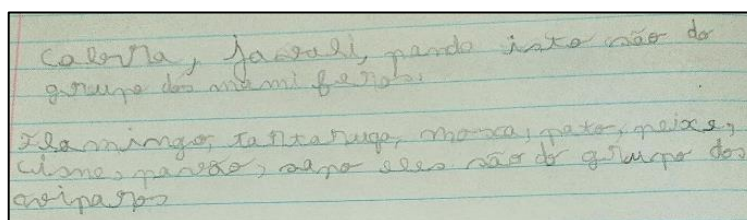 Caberra, jacaré, panda isto são do
grupo dos mamiferos.
Flamingo, tartaruga, mosca, pato, peixe,
cisne, pavão, sapo eles são do grupo dos
oviparos